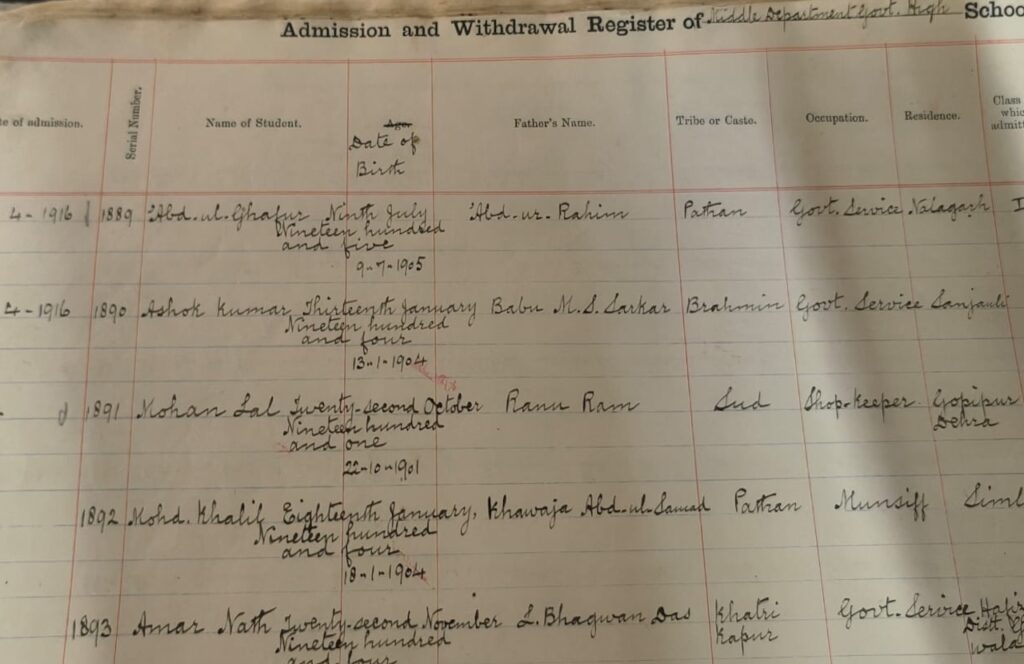 Admission and Withdrawal Register of Middle Department Govt. High Schoo
te of admission. Serial Number. Name of Student. Age. Date of Birth Father's Name. Tribe or Caste. Occupation. Residence. Class whic admitt
4-1916 1889 'Abd-ul-Ghafur Ninth July 'Abd-ur-Rahim Pathan Govt. Service Nalagarh I
Nineteen hundred
and five
9-7-1905
4-1916 1890 Ashok Kumar Thirteenth January Babu M. S. Sarkar Brahmin Govt. Service Sanjauli
Nineteen hundred
and four
13-1-1904
1891 Mohan Lal Twenty-second October Ranu Ram Sud Shop-keeper Gopipur
Nineteen hundred Dehra
and one
22-10-1901
1892 Mohd. Khalil Eighteenth January, Khawaja Abd-ul-Samad Pathan Munsiff Siml
Nineteen hundred
and four
18-1-1904
1893 Amar Nath Twenty-second November L. Bhagwan Das Khatri Govt. Service Hafiz
Nineteen hundred Kapur Distt. G
and four wala